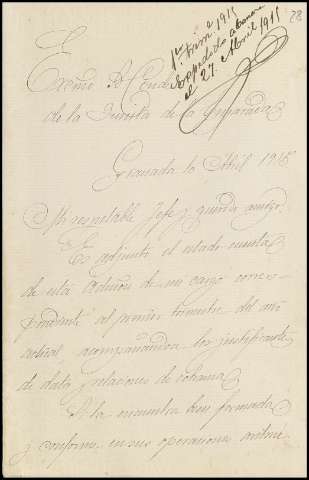 28
1er Trim.e 1915
Expedido abonaré
el 27. Abril 1915
Excmo Sr Conde
de la Quinta de la Enjarada
Granada 10 Abril 1915
Mi respetable Jefe y querido amigo:
Es adjunto el estado cuenta
de esta Admón de mi cargo corres-
pondiente al primer trimestre del año
actual, acompañandola los justificantes
de data y relaciones de cobranza
Si la encuentra bien formada
y conforme en sus operaciones aritmé-